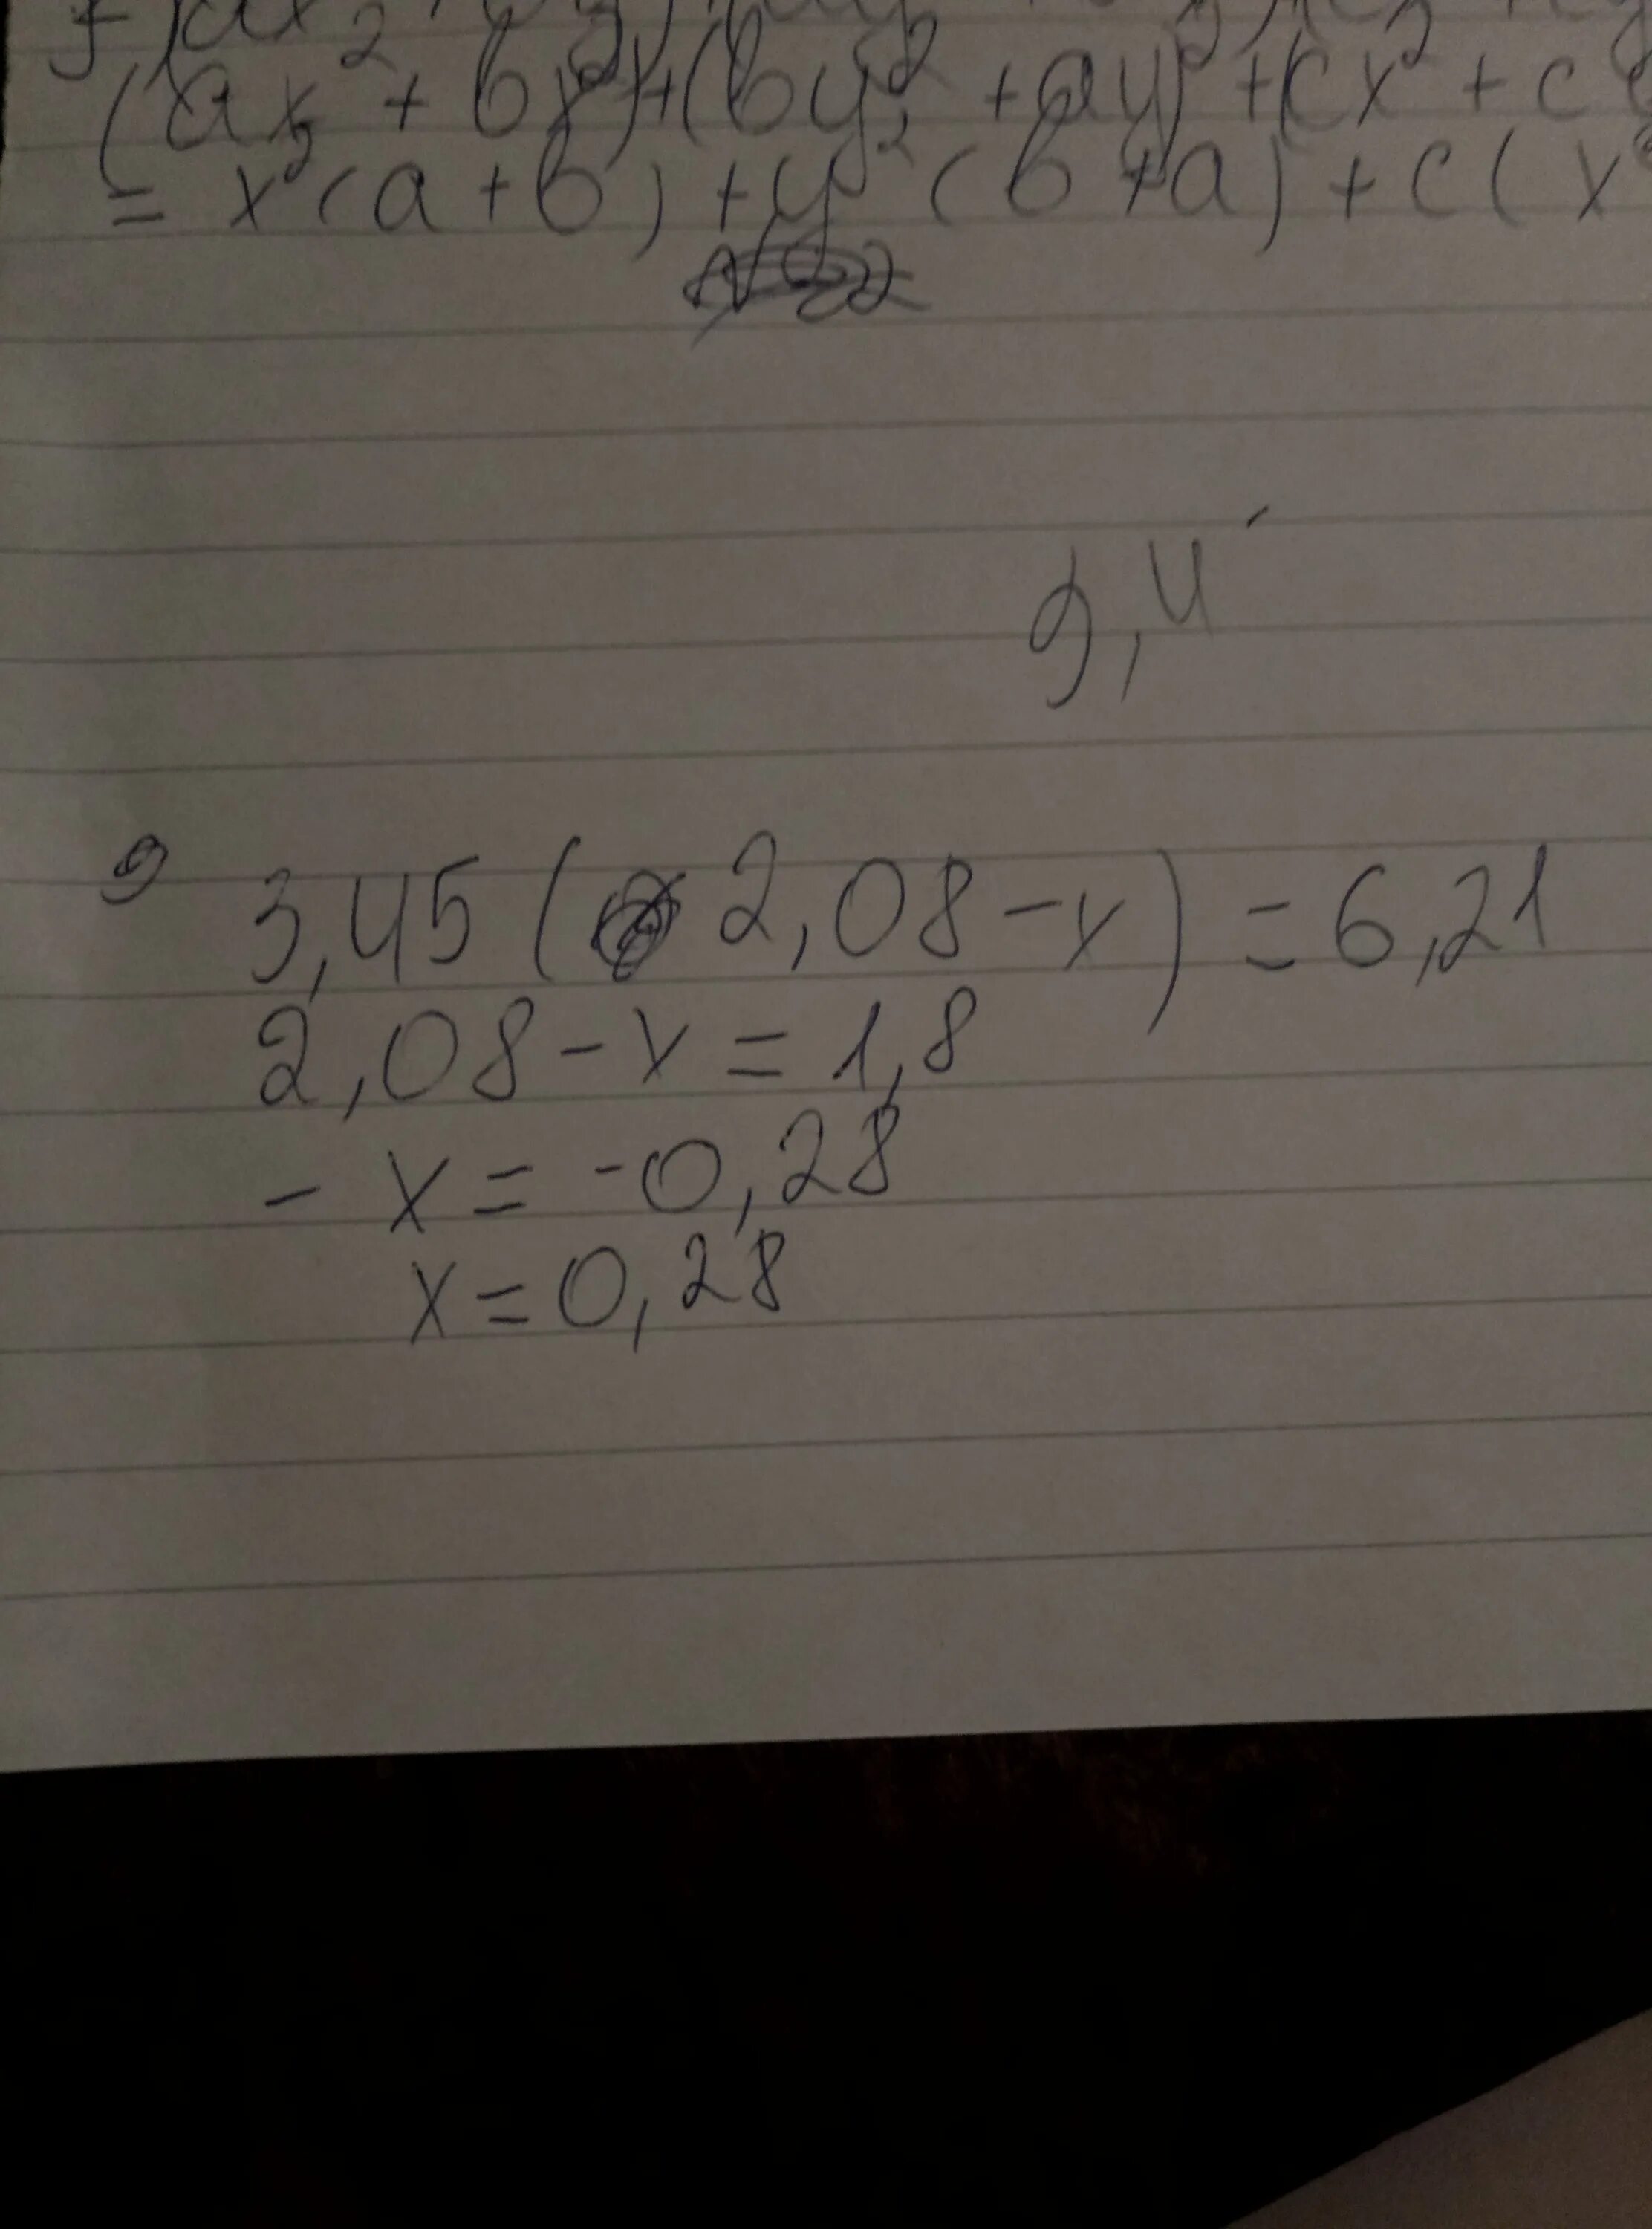 (ax² + bx²)+(by² + ay²)+(cx² + c
= x²(a+b) + y²(b+a) + c(x
9,4
9 3,45 ( 2,08 - x ) = 6,21
2,08 - x = 1,8
- x = -0,28
x = 0,28